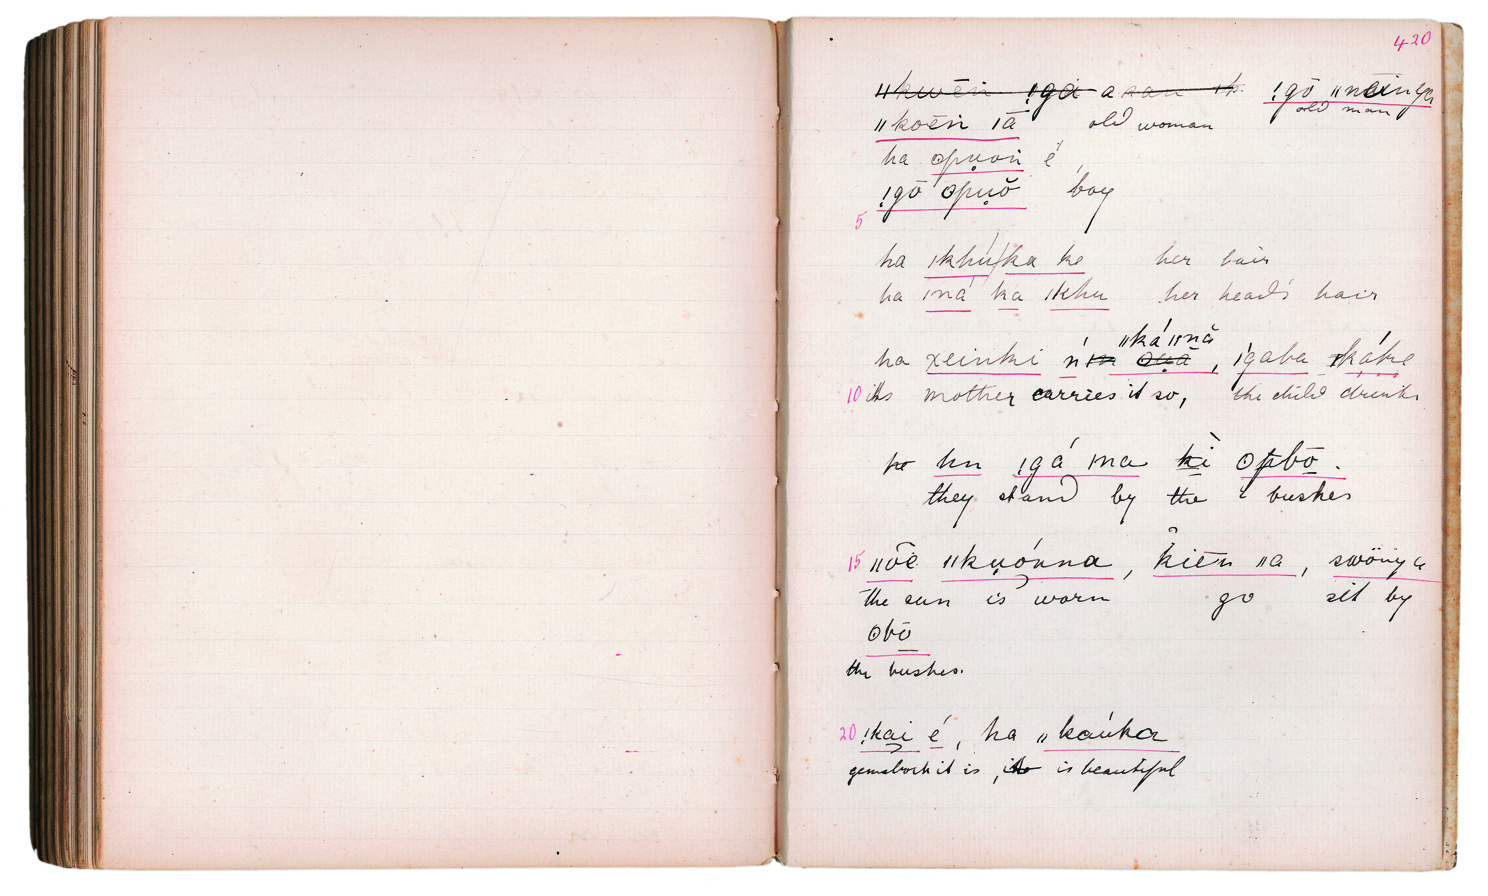 420
ǃgō ǁnēinya
old man
ǁkoēn ǀā old woman
ha ʘpu̩on é
ǃgō ʘpu̩ŏ boy
5
ha ǀkhú/ka ke her hair
ha ǀná ka ǀkhu her head's hair
ǁká ǁnă
ha xeinki ń, ǀgaba káke
10 its mother carries it so, the child drinks
hn ǀgá ma kì ʘpbō.
they stand by the bushes
15 ǁōē ǁku̩ónna, k̂iēn ǁa, swönya
the sun is warm go sit by
ʘbō
the bushes.
20 ǃkai é, ha ǁkaúka
gemsbock it is, is beautiful